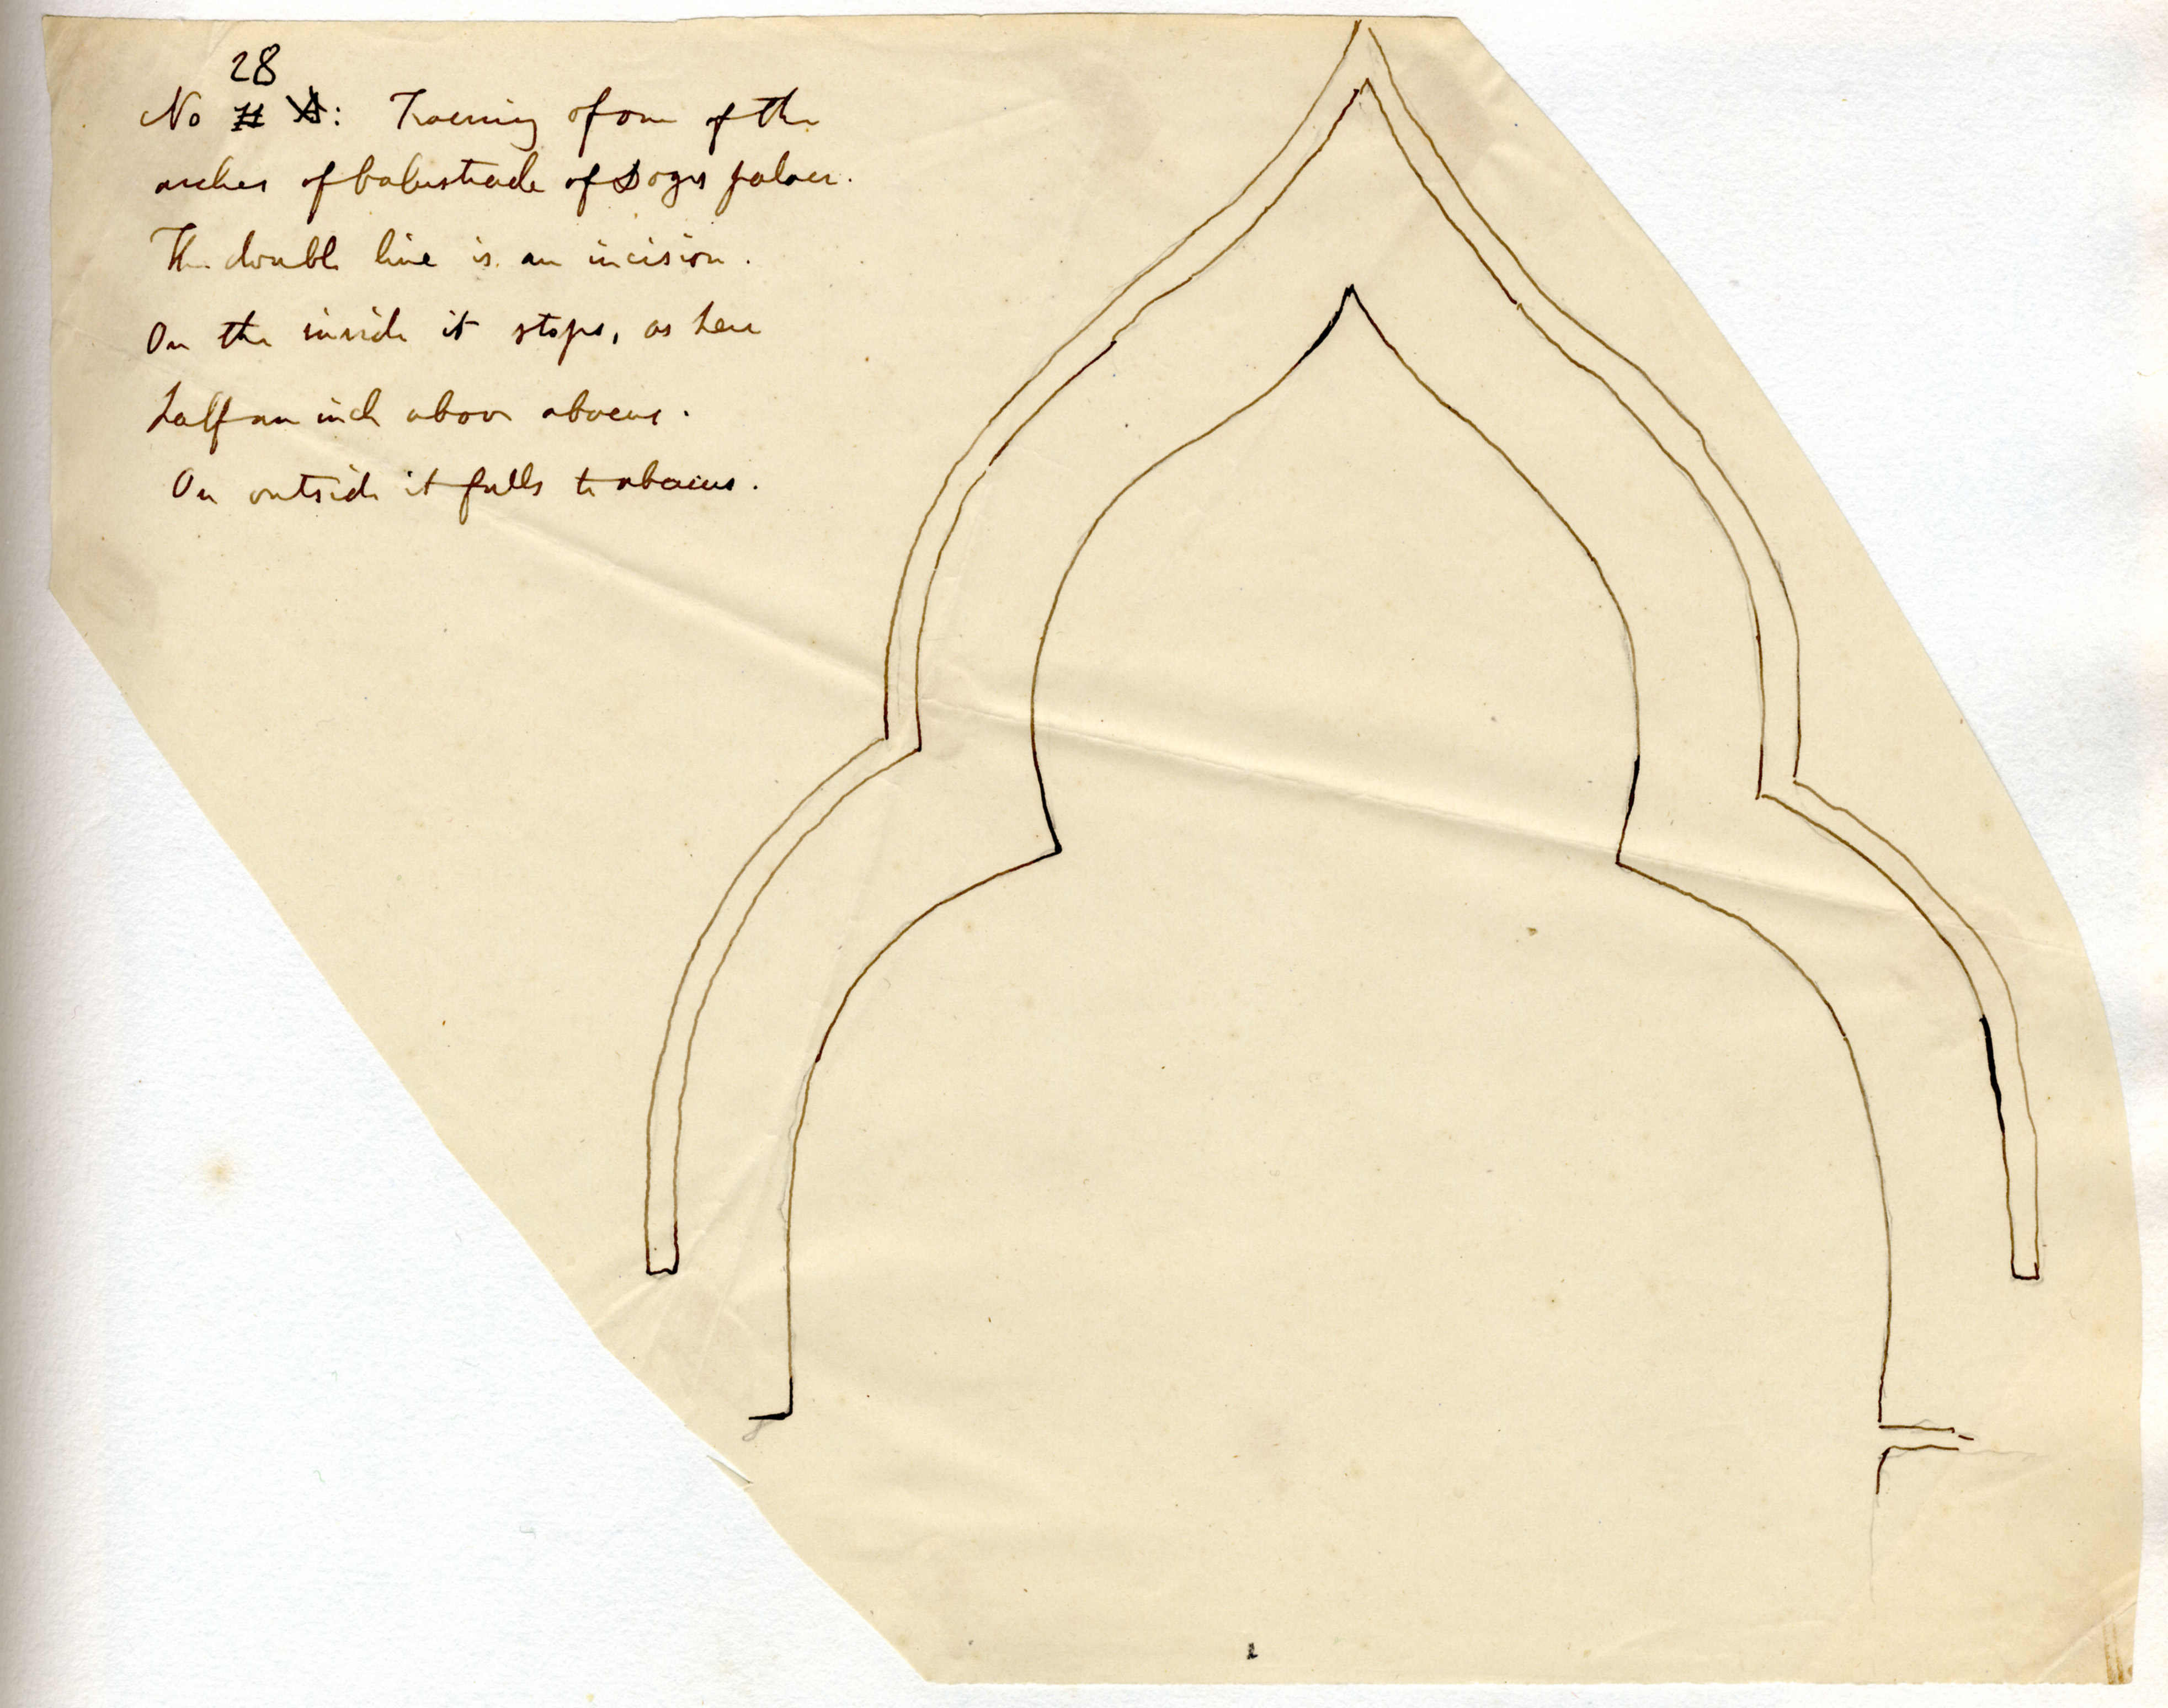 28
No : Tracing of one of the
arches of balustrade of Doges palace.
The double line is an incision.
On the inside it stops, as here
half an inch above abacus.
On outside it falls to abacus.